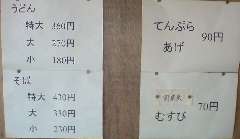 うどん
特大 360円
大 270円
小 180円
そば
特大 430円
大 330円
小 230円
てんぷら
あげ
90円
むすび
70円